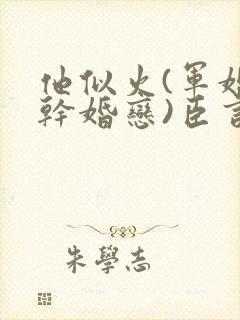 他似火(軍婚
幹婚戀)臣言
朱學志